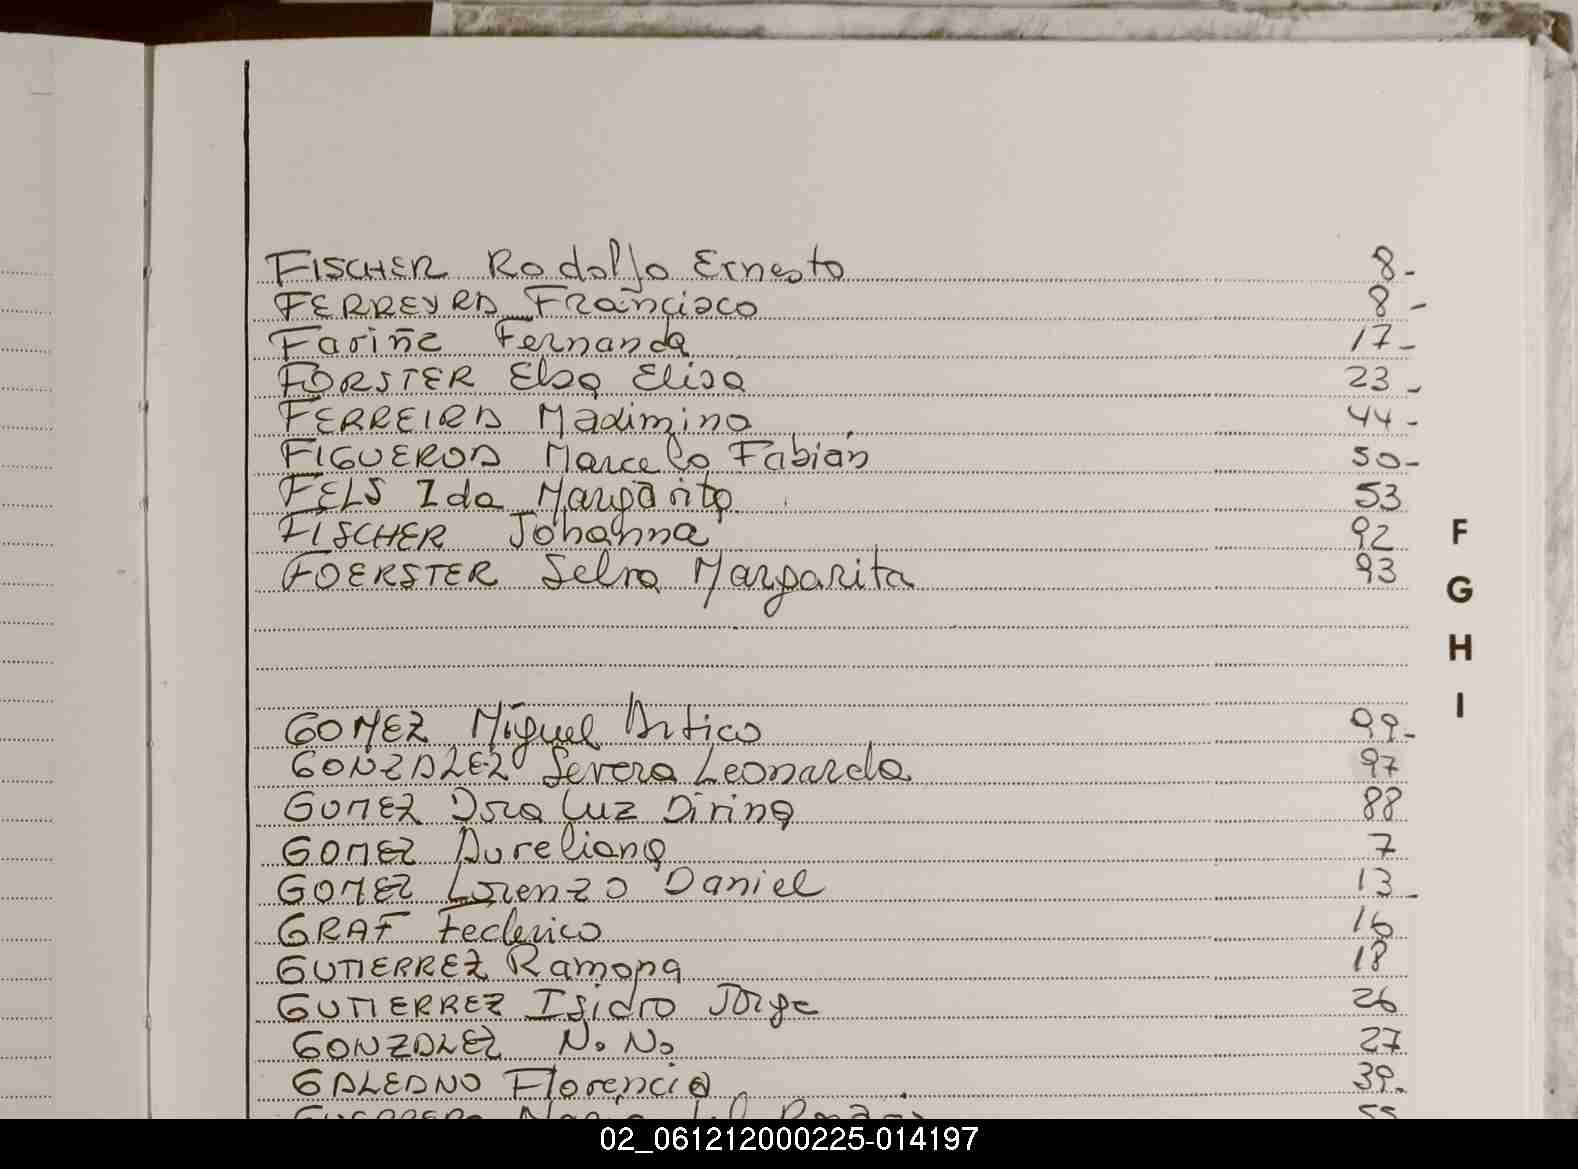 FISCHER Rodolfo Ernesto 8-
FERREYRA Francisco 8-
Fariñe Fernanda 17-
FORSTER Elsa Elisa 23-
FERREIRA Madimino 44-
FIGUEROA Marcelo Fabián 50-
FELS Ida Margarita 53
FISCHER Johanna 92
FOERSTER Selva Margarita 93
F
G
H
I
GOMEZ Miguel Artico 99-
GONZALEZ Severo Leonarda 97
GOMEZ Luz 88
GOMEZ Aureliano 7
GOMEZ Lorenzo Daniel 13-
GRAF Federico 16
GUTIERREZ Ramona 18
GUTIERREZ Isidro Jorge 26
GONZALEZ N. N. 27
GALEANO Florencia 39-
55
02_061212000225-014197